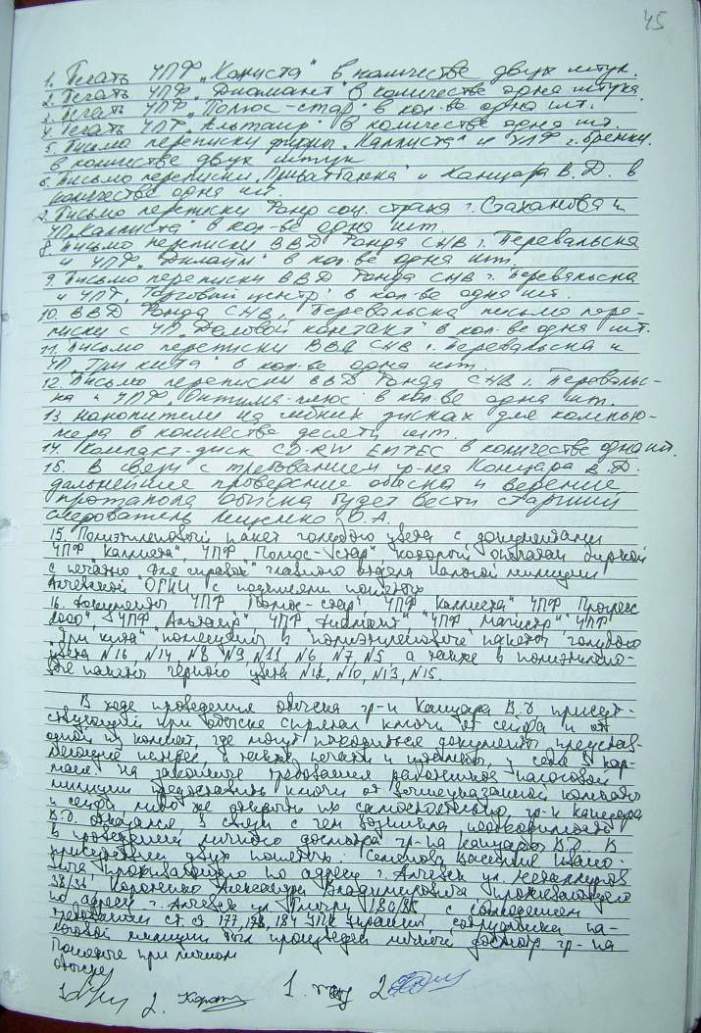 45
1. Печать ЧПФ „Каллиста" в количестве двух штук.
2. Печать ЧПФ „Диамант" в количестве одна штука
3. Печать ЧПФ „Полюс-стар" в кол-ве одна шт.
4. Печать ЧПФ „Альтаир" в количестве одна шт.
5. Письмо переписки фирмы „Каллиста" и ЧПФ г. Брянки
в количестве двух штук
6. Письмо переписки „Приватбанка" и Канцара В.Д. в
количестве одна шт.
7. Письмо переписки Фонд соц. страха г. Стаханова и
ЧП „Каллиста" в кол-ве одна шт.
8. Письмо переписки ВВД Фонда СНВ г. Перевальска
и ЧПФ в кол-ве одна шт.
9. Письмо переписки ВВД Фонда СНВ г. Перевальска
и ЧПФ „Торговый центр" в кол-ве одна шт.
10. ВВД Фонда СНВ г. Перевальска письмо пере-
писки с ЧП „Деловой контакт" в кол-ве одна шт.
11. Письмо переписки ВВД СНВ г. Перевальска и
ЧП „Три кита" в кол-ве одна шт.
12. Письмо переписки ВВД Фонда СНВ г. Переваль-
ска и ЧПФ „Оптима-плюс" в кол-ве одна шт.
13. Накопители на гибких дисках для компью-
тера в количестве десяти шт.
14. Компакт-диск CD-RW EMTEC в количестве одна шт.
15. В связи с требованием гр-на Канцара В.Д.
дальнейшее проведение обыска и ведение
протокола обыска будет вести старший
следователь В.А.
15. Полиэтиленовый пакет голубого цвета с документами
ЧПФ „Каллиста", ЧПФ „Полюс-стар" который опечатан биркой
с печатью „Для справок" отдела налоговой милиции
Алчевской ОГНИ с подписями понятых
16. Документы ЧПФ „Полюс-стар", ЧПФ „Каллиста" ЧПФ Прогресс
ЧПФ „Альтаир" ЧПФ „Диамант" ЧПФ Магистр" ЧПФ
„Три кита" помещены в полиэтиленовые пакеты голубого
цвета №16, №14, №8, №9, №11, №6, №7, №5 а также в полиэтилено-
вые пакеты черного цвета №12, №10, №13, №15.
В ходе проведения обыска гр-н Канцара В.Д. присут-
ствующий при обыске спрятал ключи от сейфа и от
одной из комнат, где могут находиться документы, представ-
ляющие интерес, а также печати и штампы, у себя в кар-
мане. На законное требование работников налоговой
милиции предоставить ключи от вышеуказанной комнаты
и сейфа либо же открыть их самостоятельно, гр-н Канцара
В.Д. отказался, в связи с чем возникла необходимость
в проведении личного досмотра гр-на Канцары В.Д. В
присутствии двух понятых: Василия Ивано-
вича, проживающего по адресу г. Алчевск ул. Металлургов
38/31, Коротенко Александра Владимировича проживающего
по адресу г. Алчевск ул. с соблюдением
требований ст. ст. 177, 184 УПК Украины сотрудниками на-
логовой милиции был произведен личный досмотр гр-на
Понятые при личном
обыске
1. 2. 1. 2.